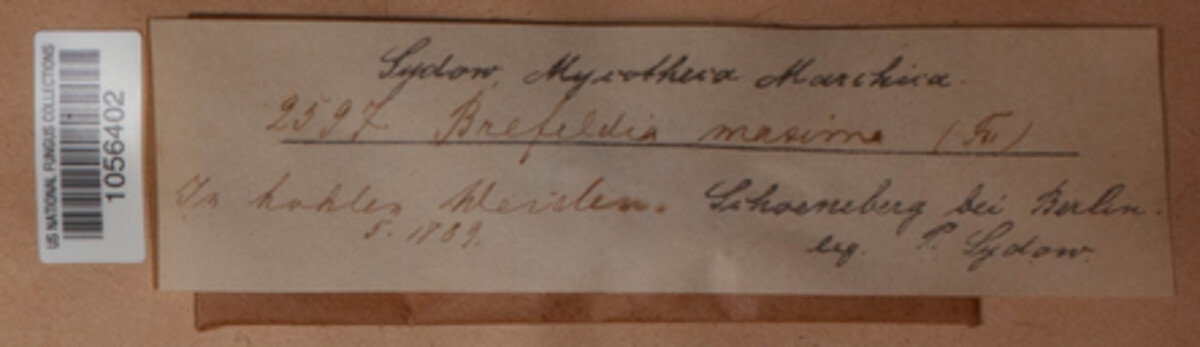 US NATIONAL FUNGUS COLLECTIONS
1056402
Sydow, Mycotheca Marchica.
2597. Brefeldia maxima (Fr)
In hohlen Weiden. Schoeneberg bei Berlin.
5. 1889. leg. P. Sydow.